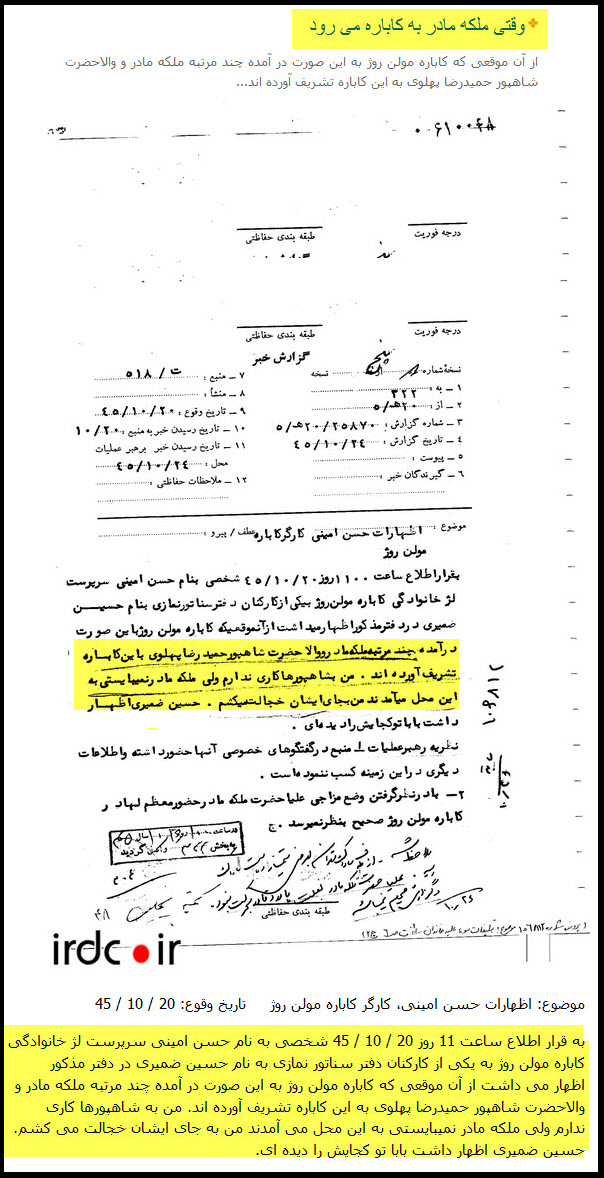 وقتی ملکه مادر به کاباره می رود
از آن موقعی که کاباره مولن روژ به این صورت در آمده چند مرتبه ملکه مادر و والاحضرت
شاهپور حمیدرضا پهلوی به این کاباره تشریف آورده اند...
درجه فوریت طبقه بندی حفاظتی
درجه فوریت طبقه بندی حفاظتی
گزارش خبر
نسخه شماره نسخه ۷ ـ منبع : ت / ۵۱۸
۱ ـ به : ۳۲۲ ۸ ـ منشأ :
۲ ـ از : ۲۰هـ/۵ ۹ ـ تاریخ وقوع : ۴۵/۱۰/۲۰
۳ ـ شماره گزارش : ۲۵۸۷۰/۲۰هـ/۵ ۱۰ ـ تاریخ رسیدن خبر به منبع : ۱۰/۲۰
۴ ـ تاریخ گزارش : ۴۵/۱۰/۲۴ ۱۱ ـ تاریخ رسیدن خبر برهبر عملیات
۵ ـ پیوست : محل : ۴۵/۱۰/۲۴
۶ ـ گیرندگان خبر : ۱۲ ـ ملاحظات حفاظتی :
موضوع : اظهارات حسن امینی کارگر کاباره عطف / پیرو :
مولن روژ
بقرار اطلاع ساعت ۱۱۰۰ روز ۴۵/۱۰/۲۰ شخصی بنام حسن امینی سرپرست
لژ خانوادگی کاباره مولن روژ بیکی از کارکنان دفتر سناتور نمازی بنام حسین
ضمیری در دفتر مذکور اظهار میداشت از آنموقعیکه کاباره مولن روژ باین صورت
درآمده چند مرتبه ملکه مادر و والاحضرت شاهپور حمیدرضا پهلوی باین کاباره
تشریف آورده اند . من بشاهپورها کاری ندارم ولی ملکه مادر نمیبایستی به
این محل میآمدند من بجای ایشان خجالت میکشم . حسین ضمیری اظهار
داشت بابا تو کجایش را دیده ای .
نظریه رهبر عملیات ۱ـ منبع در گفتگوهای خصوصی آنها حضور داشته و اطلاعات
دیگری در این زمینه کسب ننموده است .
۲ ـ با در نظر گرفتن وضع مزاجی علیاحضرت ملکه مادر حضور معظم لها در
کاباره مولن روژ صحیح بنظر نمیرسد . ج
طبقه بندی حفاظتی
irdc.ir
موضوع: اظهارات حسن امینی، کارگر کاباره مولن روژ تاریخ وقوع: 20 / 10 / 45
به قرار اطلاع ساعت 11 روز 20 / 10 / 45 شخصی به نام حسن امینی سرپرست لژ خانوادگی
کاباره مولن روژ به یکی از کارکنان دفتر سناتور نمازی به نام حسین ضمیری در دفتر مذکور
اظهار می داشت از آن موقعی که کاباره مولن روژ به این صورت در آمده چند مرتبه ملکه مادر و
والاحضرت شاهپور حمیدرضا پهلوی به این کاباره تشریف آورده اند. من به شاهپورها کاری
ندارم ولی ملکه مادر نمیبایستی به این محل می آمدند من به جای ایشان خجالت می کشم.
حسین ضمیری اظهار داشت بابا تو کجایش را دیده ای.